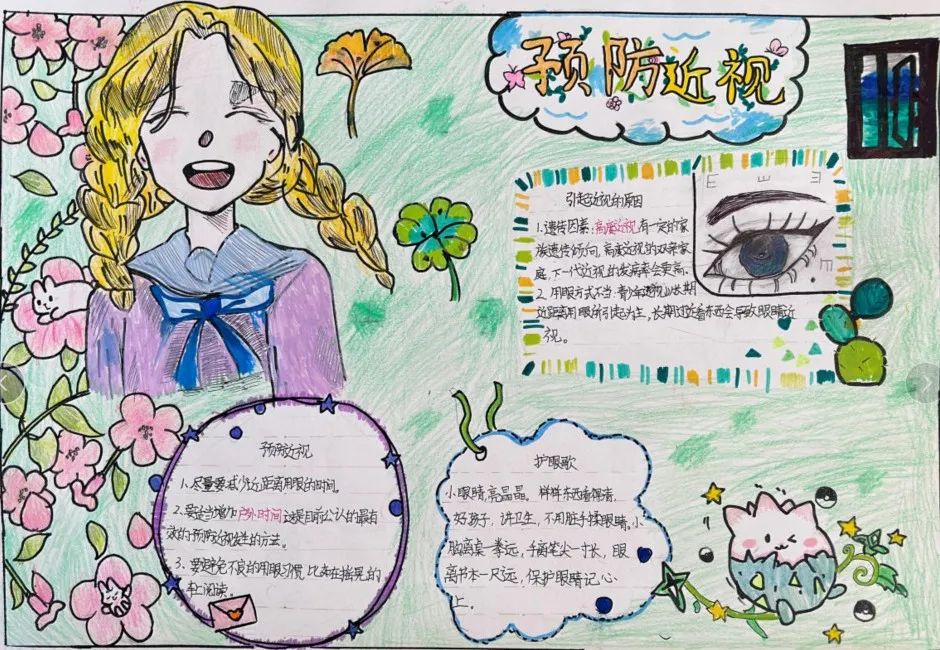 预防近视
引起近视的原因
E E
1.遗传因素:高度近视有一定的家
族遗传倾向,高度近视的双亲家
庭,下一代近视的发病率会更高。
2.用眼方式不当:青少年近视以长期
近距离用眼所引起为主,长期过近看东西会导致眼睛近
视。
预防近视
1.尽量要减少近距离用眼的时间。
2.要适当增加户外时间这是目前公认的最有
效的预防近视发生的方法。
3.要避免不良的用眼习惯,比如在摇晃的
车上阅读。
护眼歌
小眼睛,亮晶晶。样样东西看得清,
好孩子,讲卫生,不用脏手揉眼睛。小
胸离桌一拳远,手离笔尖一寸长,眼
离书本一尺远,保护眼睛记心
上。